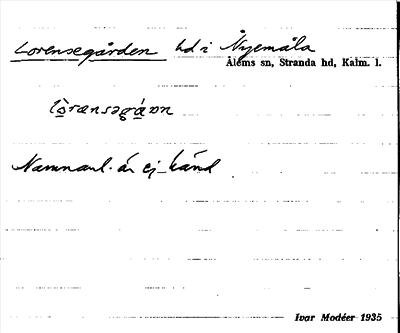 Lorensegården hd i Nyemåla
Ålems sn, Stranda hd, Kalm. l.
Namnanl. är ej känd
Ivar Modéer 1935